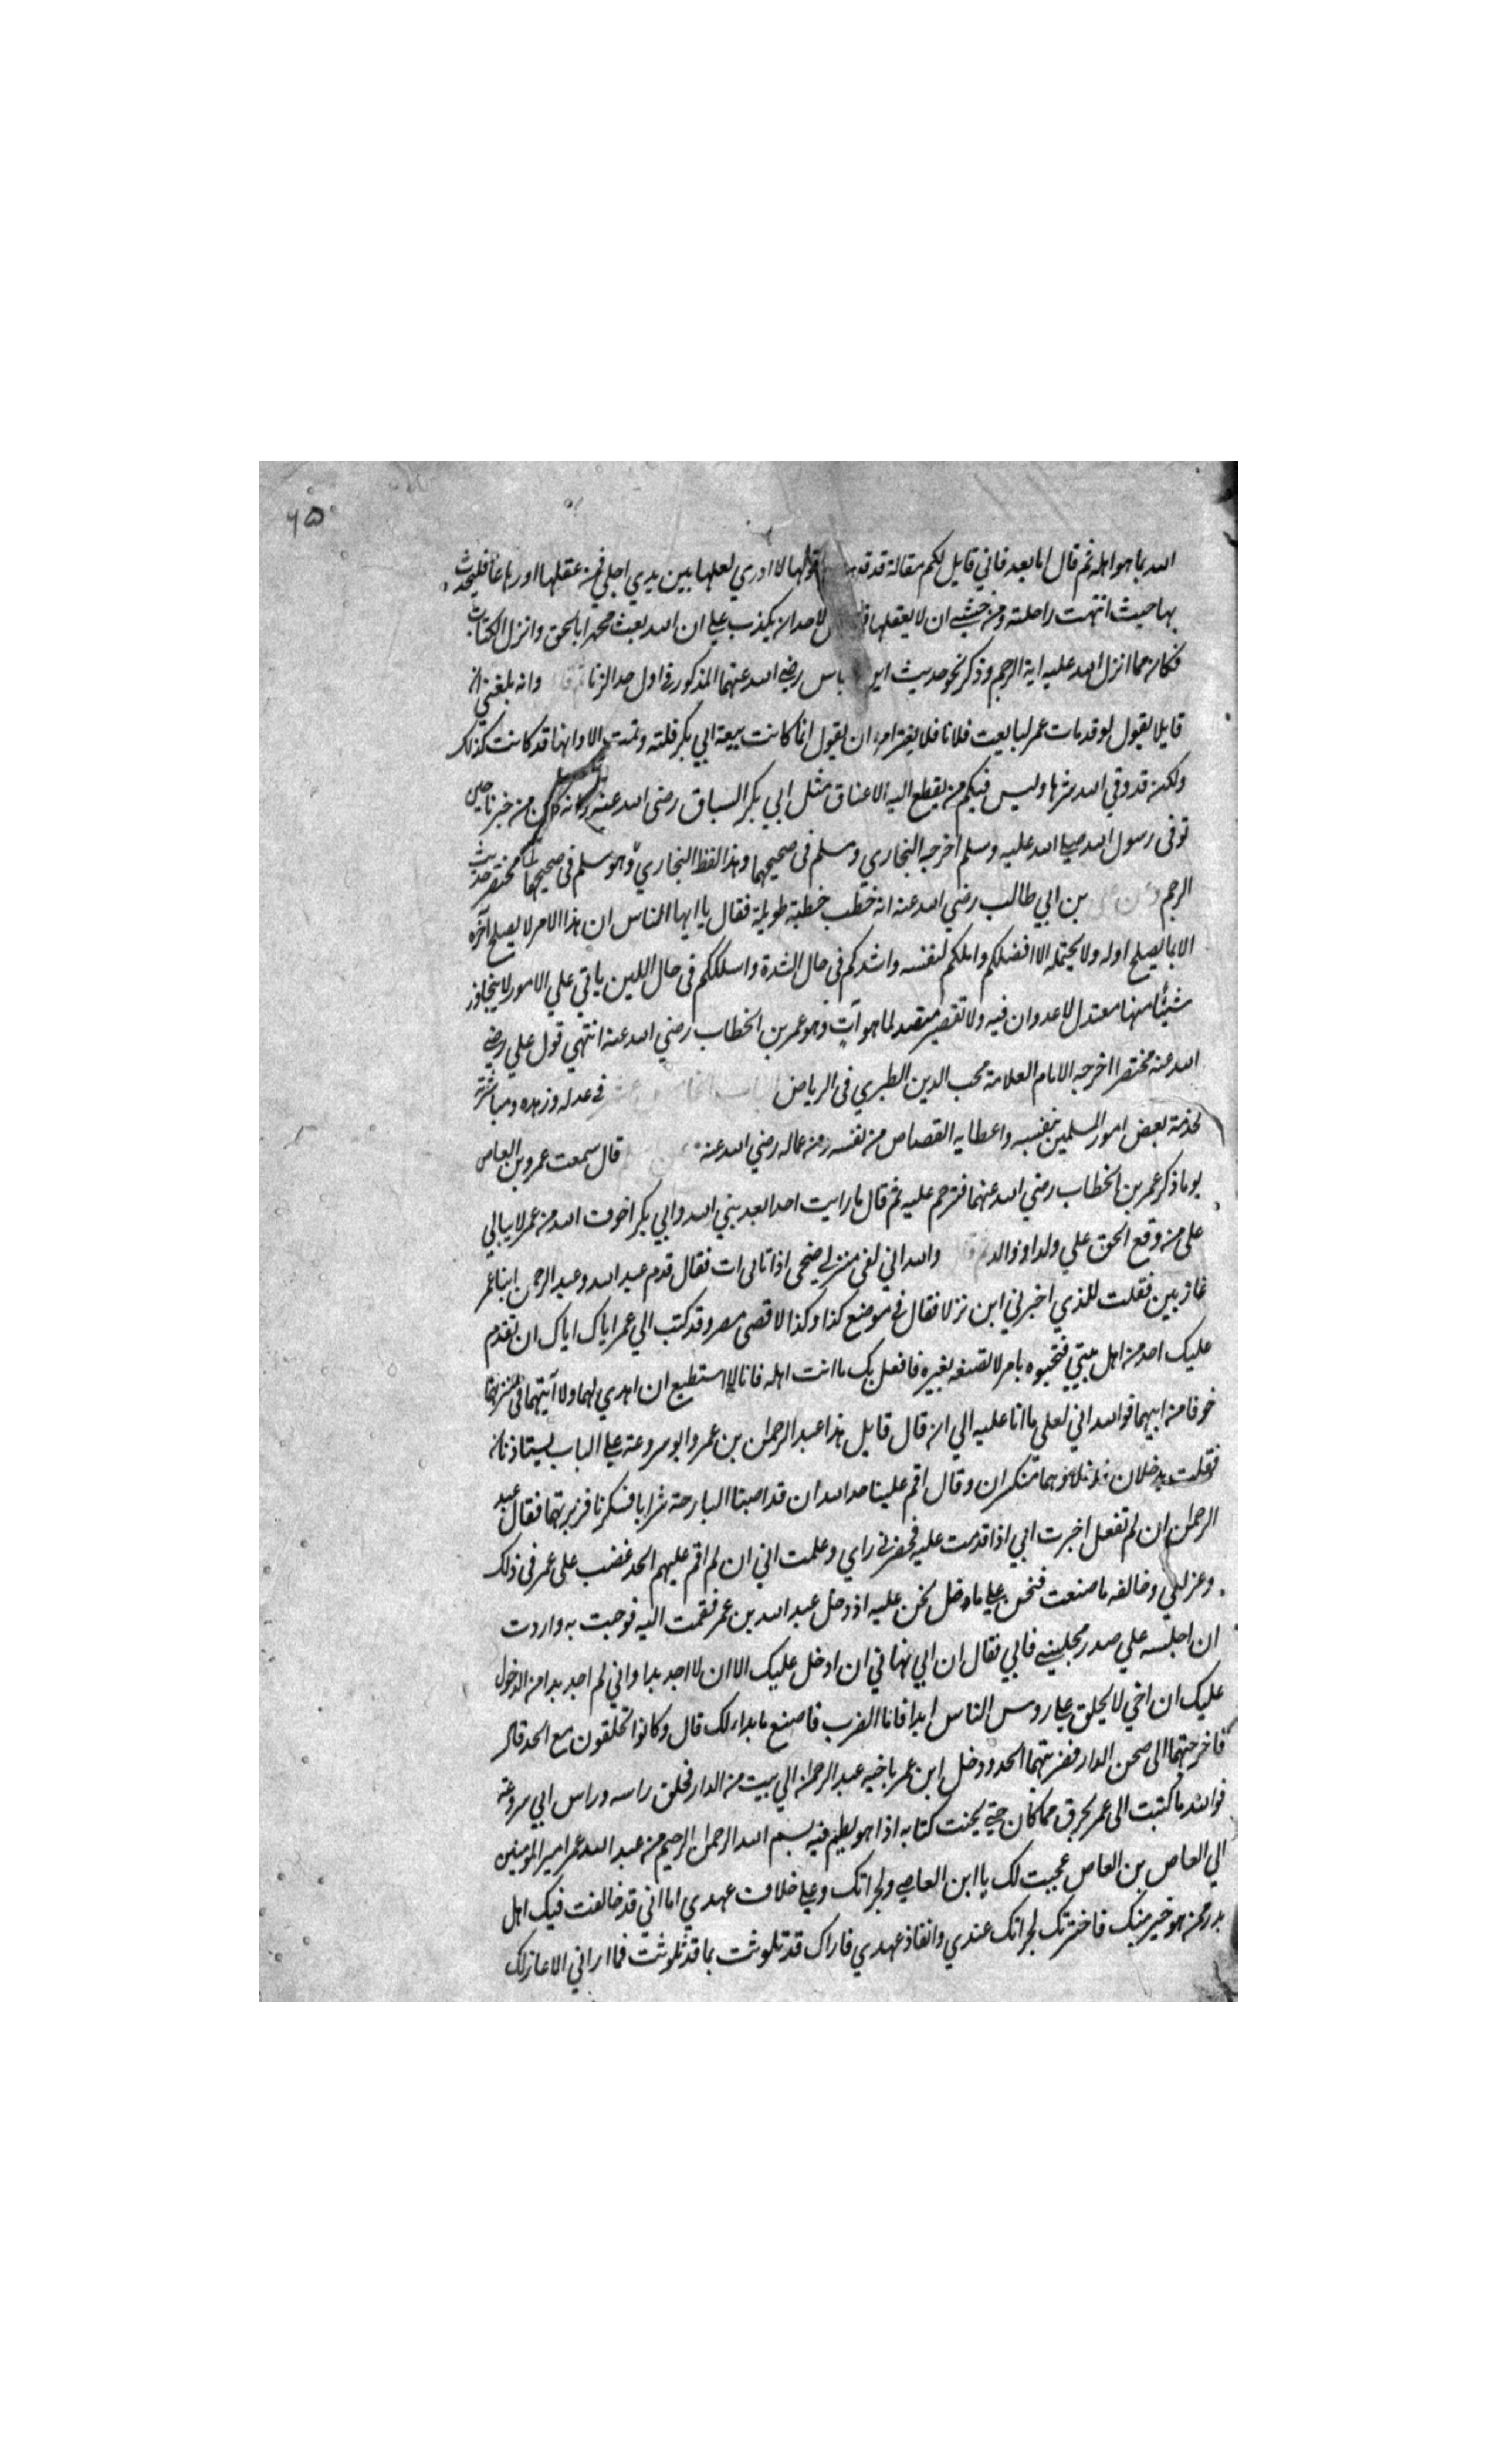 ٦٥
الله بما هو اهله ثم قال اما بعد فاني قايل لكم مقالة قد قد اقولها لا ادري لعلها بين يدي اجلي فمن عقلها او رعاها فليحدث
بها حيث انتهت راحلته ومن خشي ان لا يعقلها لاحد ان يكذب علي ان الله بعث محمدا بالحق وانزل الكتاب
فكان مما انزل الله عليه اية الرجم وذكر نحو حديث ابن باس رضي الله عنهما المذكور في اول حد الزنا وانه بلغني ان
قايلا يقول لو قد مات عمر لبايعت فلانا فلا يغتر امرء ان يقول انما كانت بيعة ابي بكر فلتة وتمت الا وانها قد كانت كذلك
ولكن قد وقي الله شرها وليس فيكم من يقطع اليه الاعناق مثل ابي بكر السباق رضي الله عنه وانه كان من خبرنا حين
توفى رسول الله صلى الله عليه وسلم اخرجه البخاري ومسلم في صحيحهما وهذا لفظ البخاري وهو مسلم في صحيحها مختصر حديث
الرجم بن ابي طالب رضي الله عنه انه خطب خطبة طويلة فقال يا ايها الناس ان هذا الامر لا يصلح آخره
الا بما يصلح اوله ولا يحتمله الا افضلكم واملككم لنفسه واشدكم في حال الشدة واسللكم في حال اللين ياتي علي الامور لا يتجاوز
شيئا منها معتدل لا عدوان فيه ولا تقصير مقصد لما هو آتٍ وهو عمر بن الخطاب رضي الله عنه انتهي قول علي رضي
الله عنه مختصرا اخرجه الامام العلامة محب الدين الطبري في الرياض الباب الخامس عشر في عدله وزهده ومباشرته
لخدمة بعض امور المسلمين بنفسه واعطايه القصاص من نفسه ومن عماله رضي الله عنه قال سمعت عمرو بن العاص
يوما ذكر عمر بن الخطاب رضي الله عنهما فترحم عليه ثم قال ما رايت احدا بعد نبي الله وابي بكر اخوف الله من عمر لا يبالي
على من وقع الحق علي ولد او والد والله اني لفي منزلي ضحى اذ اتاني ات فقال قدم عبد الله وعبد الرحمن ابنا عمر
غازيين فقلت للذي اخبرني اين نزلا فقال في موضع كذا وكذا لاقصى مصر وقد كتب الي عمر اياك اياك ان تقدم
عليك احد من اهل بيتي فتحبوه بامر لا تصنعه بغيره فافعل بك ما انت اهله فانا لا استطيع ان اهدي لهما ولا آتيهما في منزلهما
خوفا من ابيهما فوالله اني لعلي ما انا عليه الي ان قال قايل هذا عبد الرحمن بن عمر وابو سروعة علي الباب يستاذنان
فقلت يدخلان فدخلا وهما منكسران وقال اقم علينا حد الله ان قد اصبنا البارحة شرابا فسكرنا فزبرتهما فقال عبد
الرحمن ان لم تفعل اخبرت ابي اذا قدمت عليه فحضرني راي وعلمت اني ان لم اقم عليهم الحد غضب علي عمر في ذلك
وعزلني وخالفه ما صنعت فنحن علي ما دخل نحن عليه اذ دخل عبد الله بن عمر فقمت اليه فرحبت به واردت
ان اجلسه علي صدر مجلسي فابي فقال ان ابي نهاني ان ادخل عليك الا ان لا اجد بدا واني لم اجد بدا من الدخول
عليك ان اخي لا يحلق علي روس الناس ابدا فاما الضرب فاصنع ما بدا لك قال وكانوا يحلقون مع الحد قال
فاخرجتهما الى صحن الدار فضربتهما الحد ودخل ابن عمر باخيه عبد الرحمن الي بيت من الدار فحلق راسه وراس ابي سروعة
فوالله ما كتبت الى عمر بحرف مما كان حتى يحنت كتابه اذا هو يطيم فيه بسم الله الرحمن الرحيم من عبد الله عمر امير المومنين
الي العاص بن العاص عجبت لك يا ابن العاصي ولجراتك وعلي خلاف عهدي اما اني قد خالفت فيك اهل
بدر ممن هو خير منك فاخترتك لجراتك عندي وانفاذ عهدي فاراك قد تلوثت بما قد تلوثت فما اراني الا عازلك